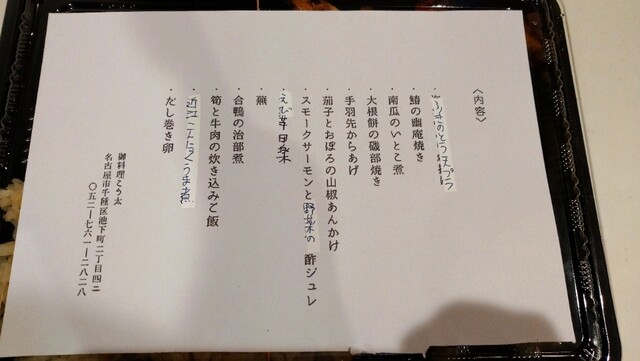 〈内容〉
・ 天ぷら
・鰆の幽庵焼き
・南瓜のいとこ煮
・大根餅の磯部焼き
・手羽先からあげ
・茄子とおぼろの山椒あんかけ
・スモークサーモンと野菜の 酢ジュレ
えび 甘日菜
・蕪
・合鴨の治部煮
・筍と牛肉の炊き込みご飯
・近江こんにゃくうま煮
・だし巻き卵
御料理こう太
名古屋市千種区池下町二丁目四ニ
〇五二ー七六一ー二八二八